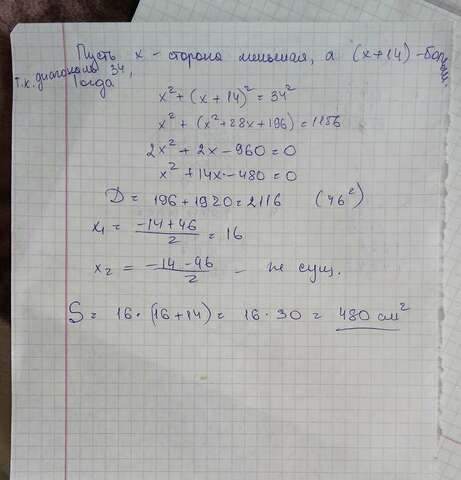 Пусть x - сторона меньшая, а (x+14) - больш.
т.к. диагональ 34,
Тогда
x² + (x + 14)² = 34²
x² + (x² + 28x + 196) = 1156
2x² + 2x - 960 = 0
x² + 14x - 480 = 0
D = 196 + 1920 = 2116 (46²)
x₁ = (-14 + 46)/2 = 16
x₂ = (-14 - 46)/2 - не сущ.
S = 16 · (16 + 14) = 16 · 30 = 480 см²